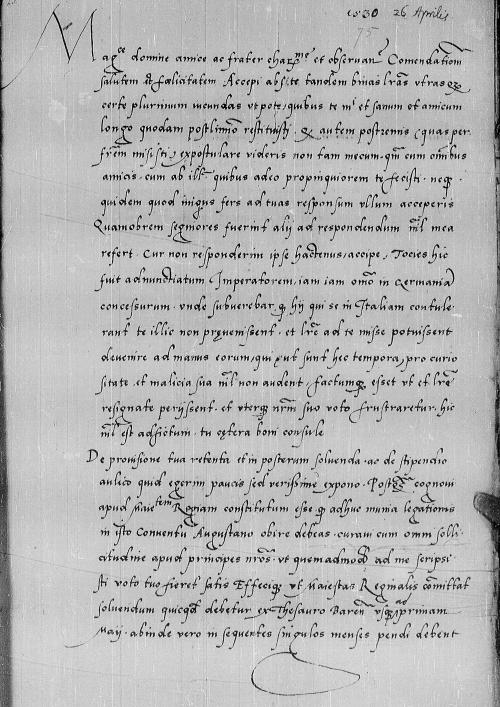 1530 26 Aprilis
75
Mag.ce domine amice ac frater char.me et observan.
Comendatiom̄
salutem et fœlicitatem Accepi abs te tandem binas lrās utrasq
certe plurimum iucundas utpote, quibus te mi et sanum et amicum
longo quodam postlimīo restituisti. Ex autem postremis (quas per
frēm misisti) expostulare videris non tam mecum, qm̄ cum om̄ibus
amicis. cum ab ill. quibus adeo propinquiorem te fecisti. neq
quidem quod iniquus fers ad tuas responsum ullum acceperis
Quamobrem segniores fuerint alij ad respondendum nīl mea
refert. Cur non responderim ipse hactenus, accipe, Tocies hic
fuit adnunctiatum Imperatorem, iam iam om̄o in Germaniā
concessurum. unde subverebar q hij qui se in Italiam contule
rant te illic non pręvenissent. et lrē ad te misse potuissent
devenire ad manus eorum, qui, ut sunt hec tempora, pro curio
sitate. et malicia sua nīl non audent, factumq esset ut et lrē
resignate perijssent. et uterq nr̄m suo voto frustraretur. hic
nīl est adfictum. tu cętera boni consule
De provisione tua retenta et in posterum solvenda. ac de stipendio
aulico quid egerim paucis sed verissime expono. Postq cognovi
apud Maie.tem Regiam constitutum esse, q adhuc munia legationis
in isto Conventu Augustano obire debeas. curavi cum omni solli
citudine apud principes nros. ut quemadmod ad me scripsi
sti voto tuo fieret satis Effeciq ut Maiestas Reginalis com̄ittat
solvendum quicqd debetur ex Thesauro Baren usq ad primam
Maij. abinde vero in sequentes singulos menses pendi debent